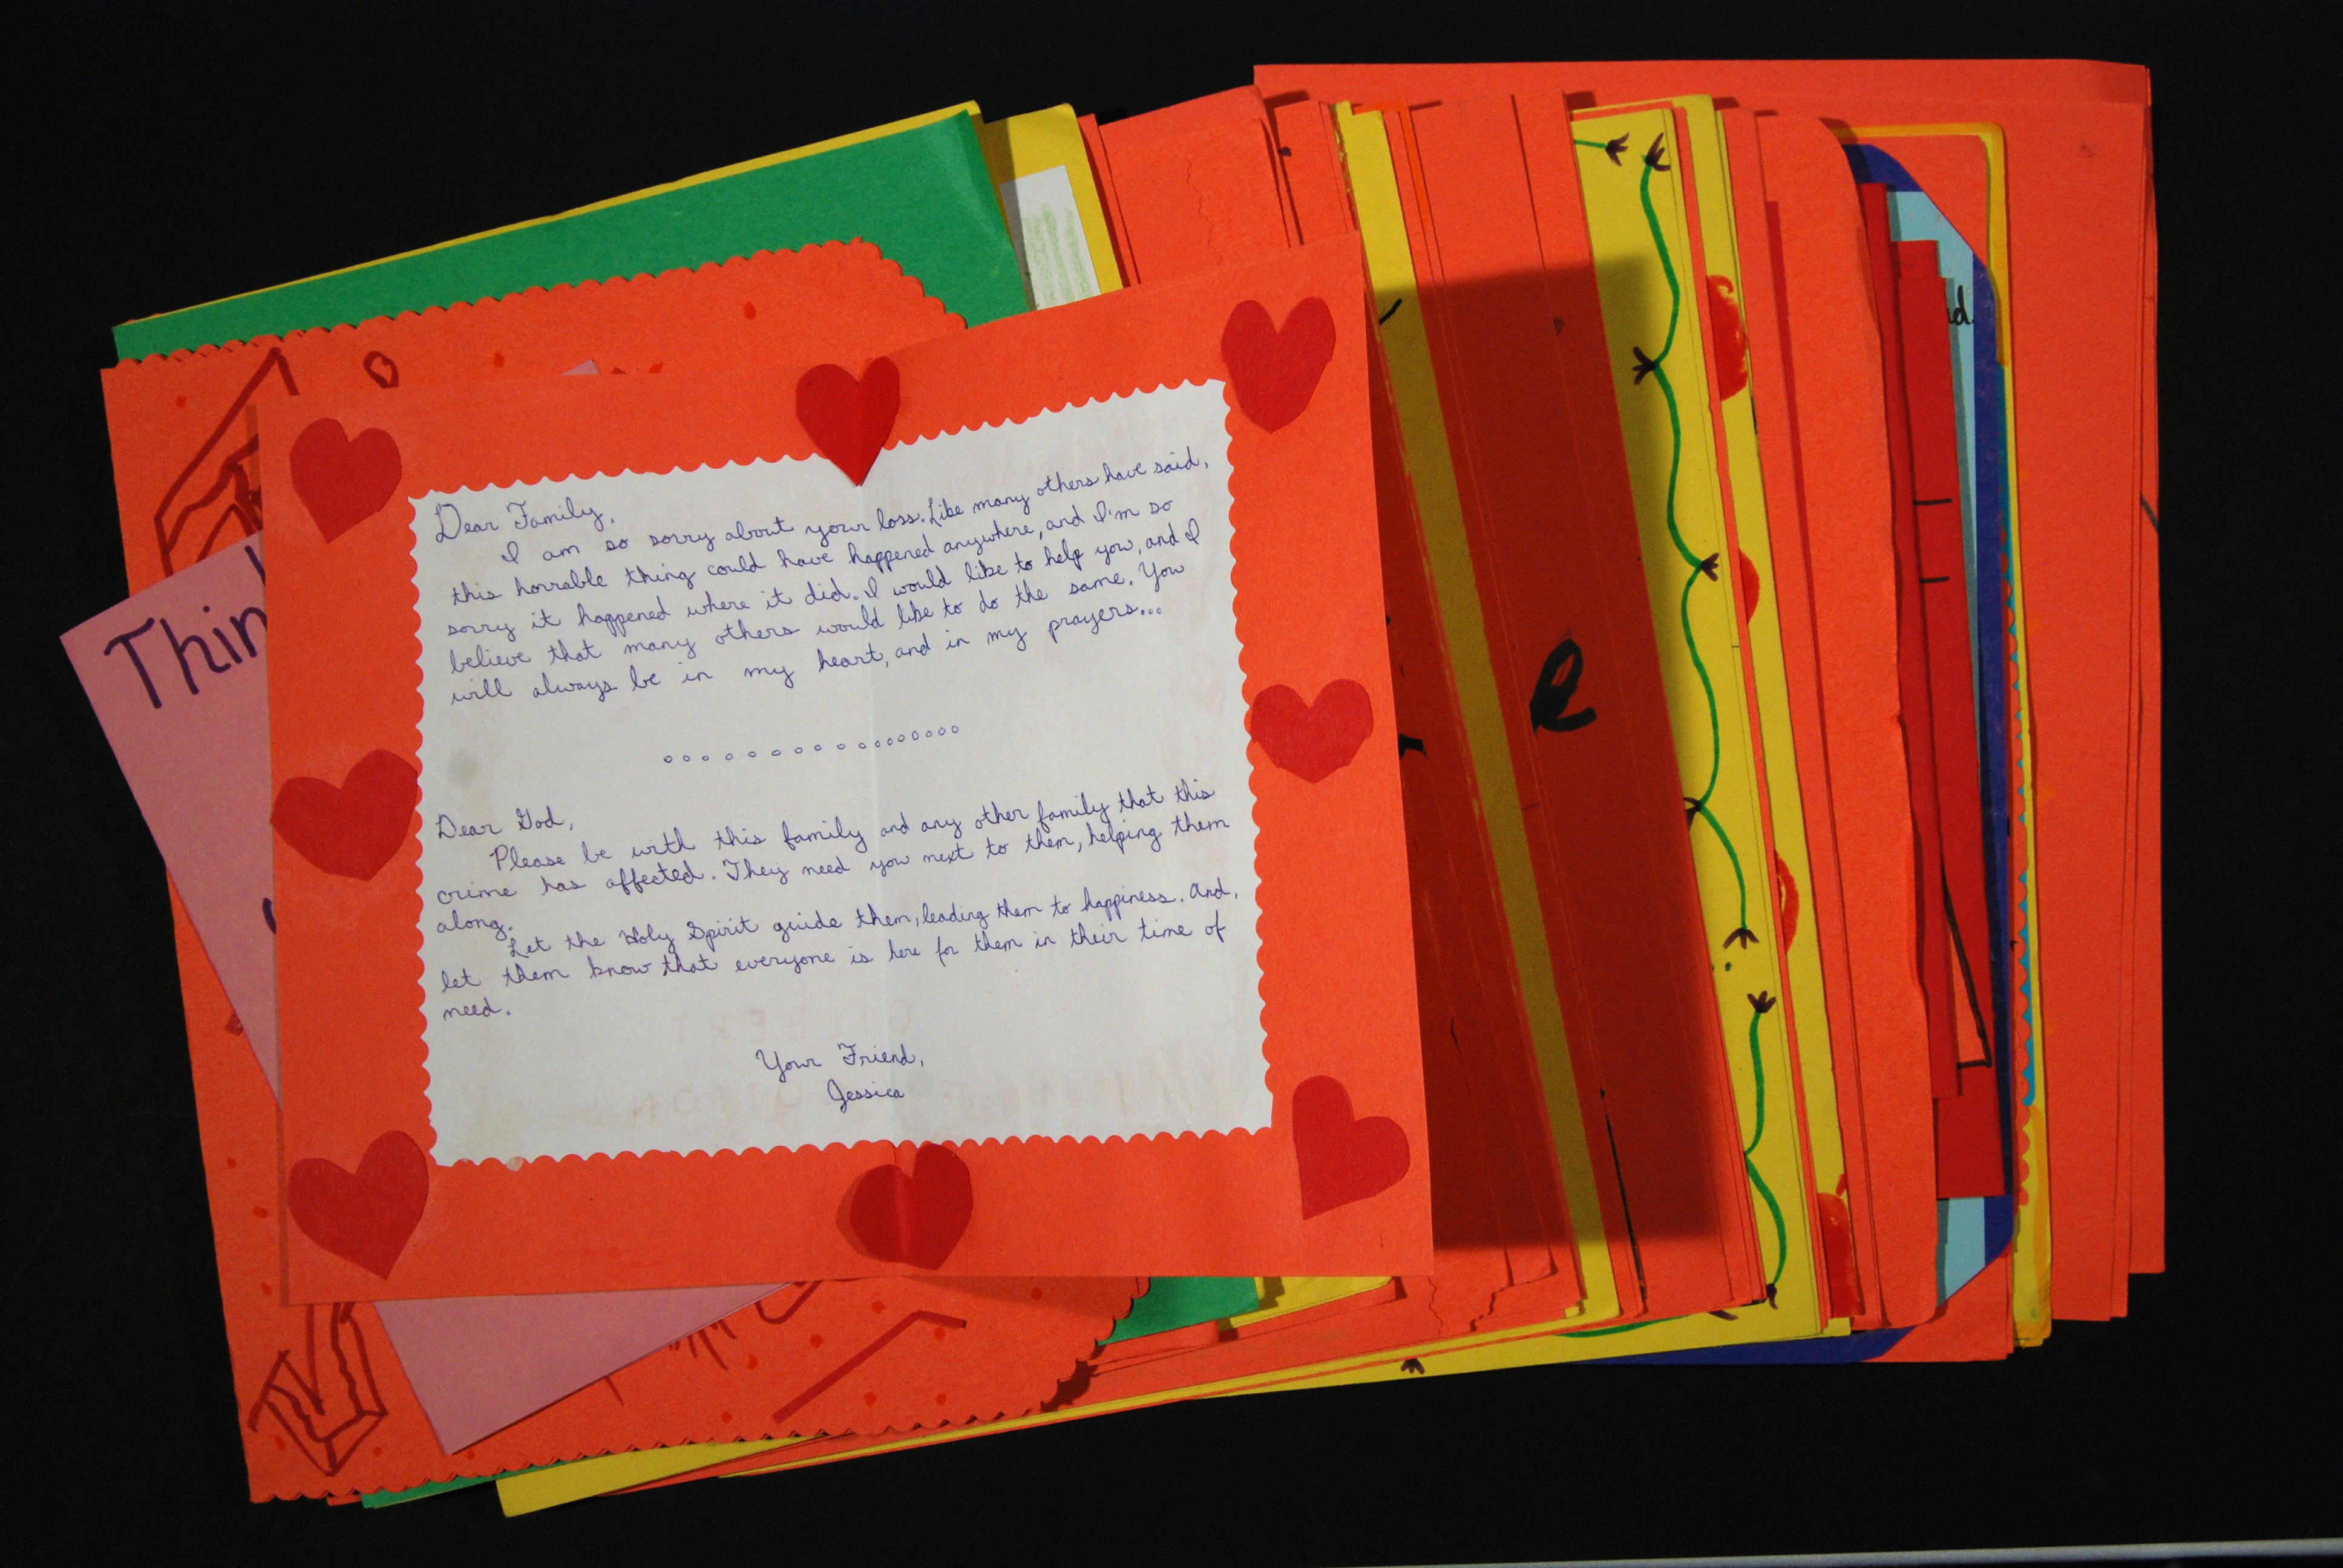 Dear Family,
I am so sorry about your loss. Like many others have said,
this horrable thing could have happened anywhere, and I'm so
sorry it happened where it did. I would like to help you, and I
believe that many others would like to do the same. You
will always be in my heart, and in my prayers...
Dear God,
Please be with this family and any other family that this
crime has affected. They need you next to them, helping them
along.
Let the Holy Spirit guide them, leading them to happiness. And,
let them know that everyone is here for them in their time of
need.
Your Friend,
Jessica
Thin
e
d